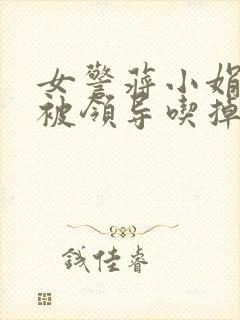 女警蒋小娟
被领导喫掉
钱佳睿